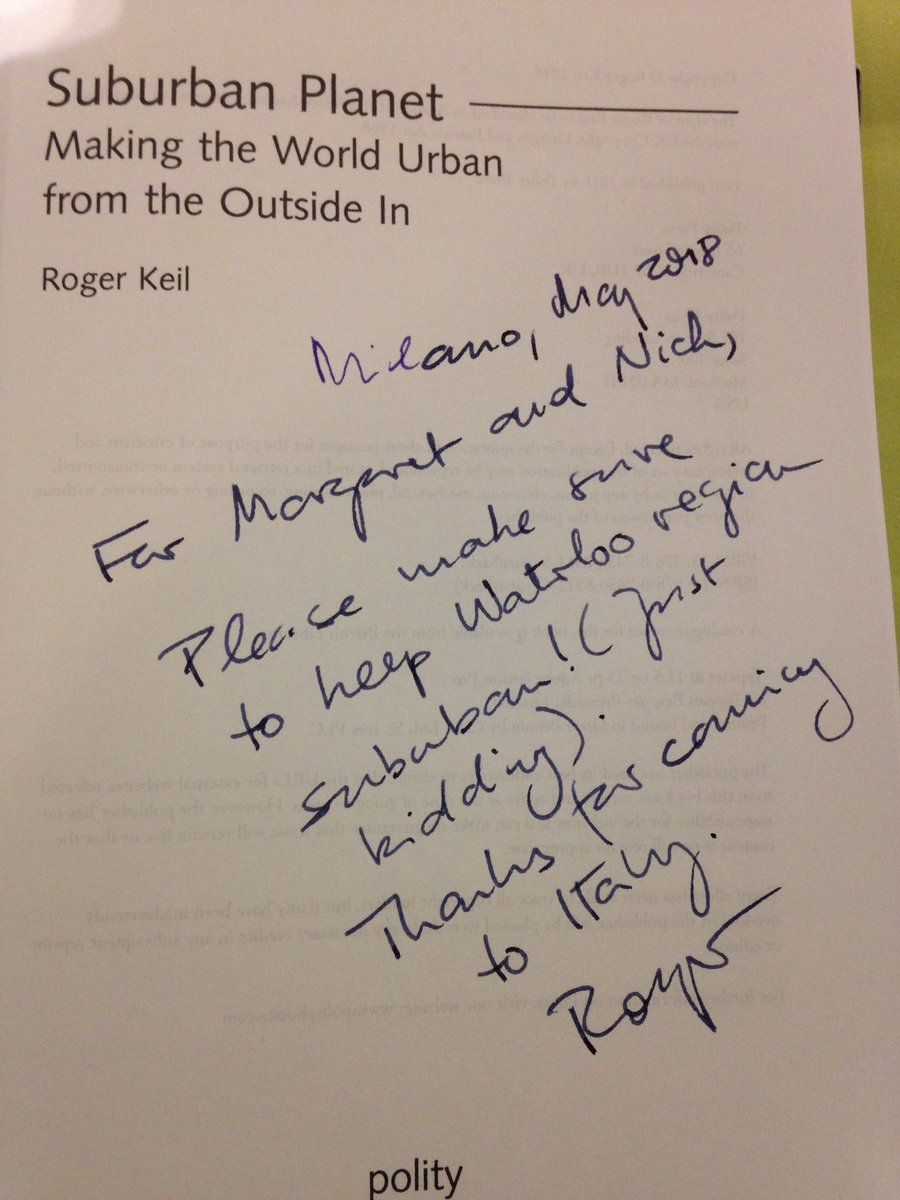 Suburban Planet
Making the World Urban
from the Outside In
Roger Keil
Milano, May 2018
For Margaret and Nick,
Please make sure
to help Waterloo region
suburban! (Just
kidding).
Thanks for coming
to Italy.
Roger
polity